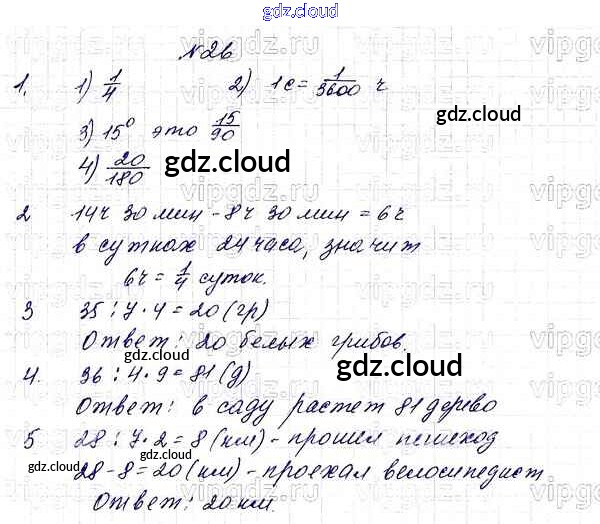 gdz.cloud
№26
1. 1) 1/4 2) 1с = 1/3600 ч
3) 15° это 15/90
4) 20/180
2 14ч 30 мин - 8ч 30 мин = 6ч
в сутках 24 часа, значит
6ч = 1/4 суток.
3 35 : 7 · 4 = 20 (гр)
Ответ: 20 белых грибов.
4. 36 : 4 · 9 = 81 (д)
Ответ: в саду растет 81 дерево
5 28 : 7 · 2 = 8 (км) - прошел пешеход
28 - 8 = 20 (км) - проехал велосипедист
Ответ: 20 км.
gdz.cloud
gdz.cloud
gdz.cloud
gdz.cloud
gdz.cloud
gdz.cloud
gdz.cloud